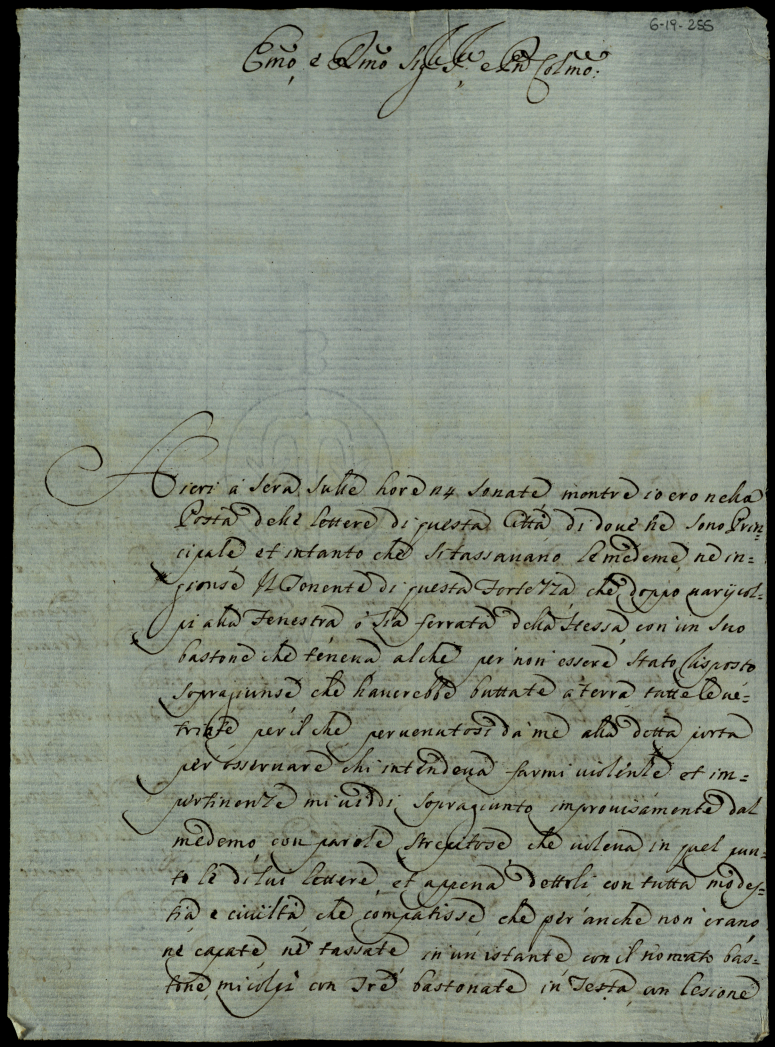 6-19-255
Emo, e Rmo Sigre Sre e Pne Colmo:
Hieri à sera sulle hore n4 sonate montre io ero nella
Posta delle lettere di questa Città di doue ne sono Prin=
cipale et intanto che si tassauano le medeme, ne in=
gionse Il Tenente di questa Fortezza che doppo uarij col=
pi alla Fenestra ò sia ferrata della stessa con un suo
bastone che teneua al che per non essere stato risposto
sopragiunse che hauerebbe buttate à terra tutte le ue=
triate per il che peruenutosi da me alla detta porta
per osseruare chi intendeua farmi uiolenze et im=
pertinenze mi uiddi sopragiunto improuisamente dal
medemo con parole strepitose che uoleua in quel pun=
to le di lui lettere, et appena dettoli con tutta modes=
tia e ciuiltà che compatisse che per anche non erano
ne capate ne tassate in un istante con il nomato bas=
tone mi colpì con trè bastonate in Testa con lesione